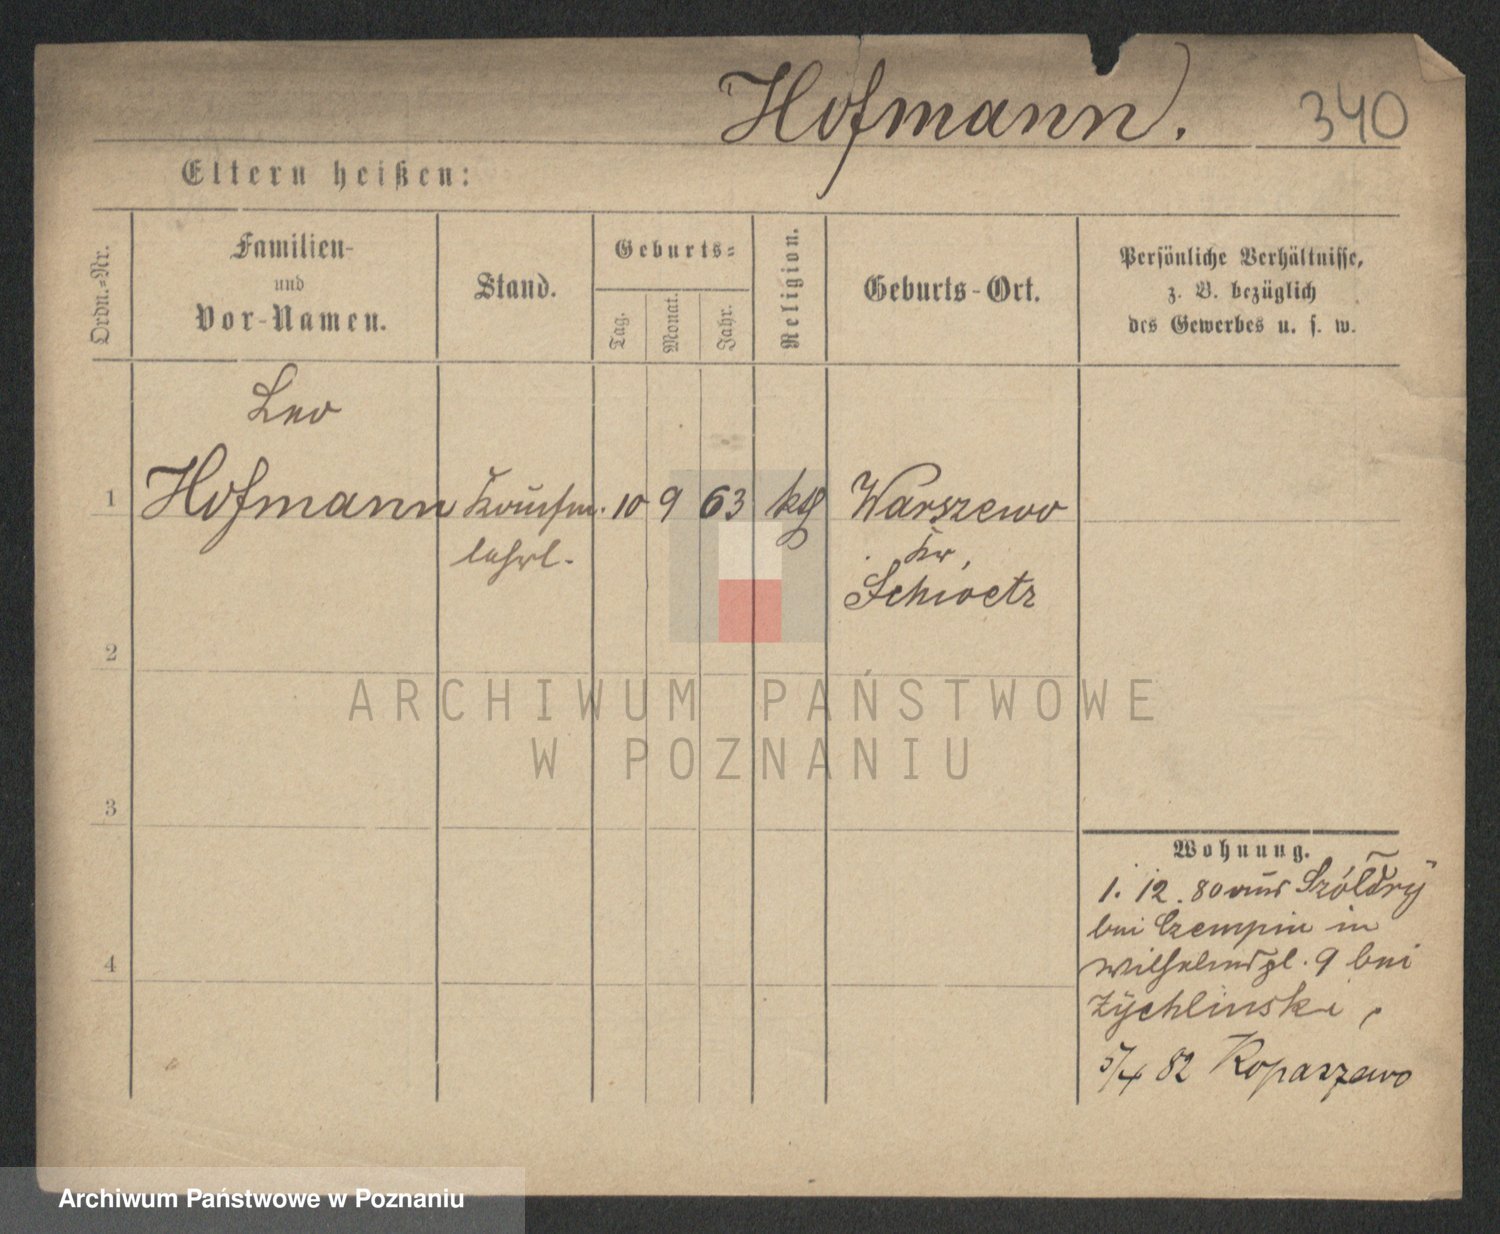 Hofmann.
340
Eltern heißen:
Ordn.-Nr.
Familien-
und
Vor-Namen.
Stand.
Geburts-
Tag.
Monat.
Jahr.
Religion.
Geburts-Ort.
Persönliche Verhältnisse,
z. B. bezüglich
des Gewerbes u. s. w.
Leo
1 Hofmann Kaufm. 10 9 63 kth Warszewo
lehrl. Kr.
Schwetz
2
3
4
ARCHIWUM PAŃSTWOWE
W POZNANIU
Wohnung.
1. 12. 80 aus Szółdry
bei Czempin in
Wilhelmspl. 9 bei
Zychlinski,
5/4 82 Kopaszewo
Archiwum Państwowe w Poznaniu